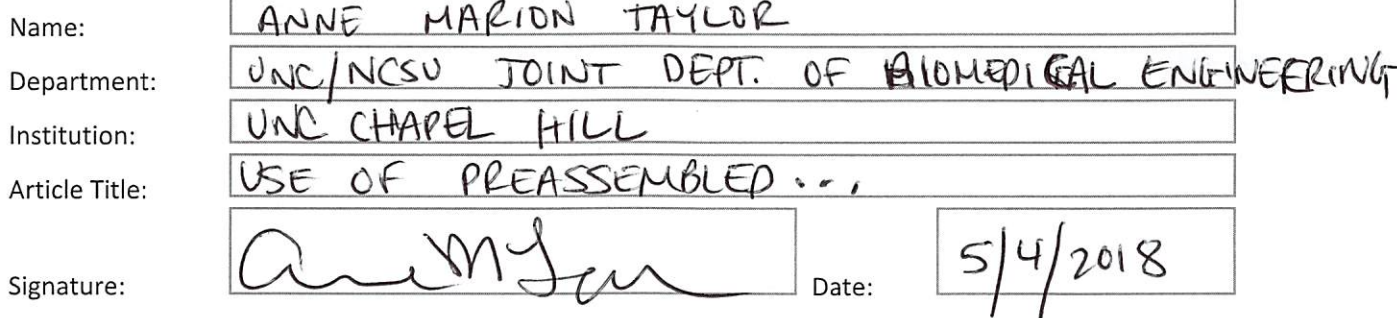 Name: ANNE MARION TAYLOR
Department: UNC/NCSU JOINT DEPT. OF BIOMEDICAL ENGINEERING
Institution: UNC CHAPEL HILL
Article Title: USE OF PREASSEMBLED ...
Signature: Date: 5/4/2018